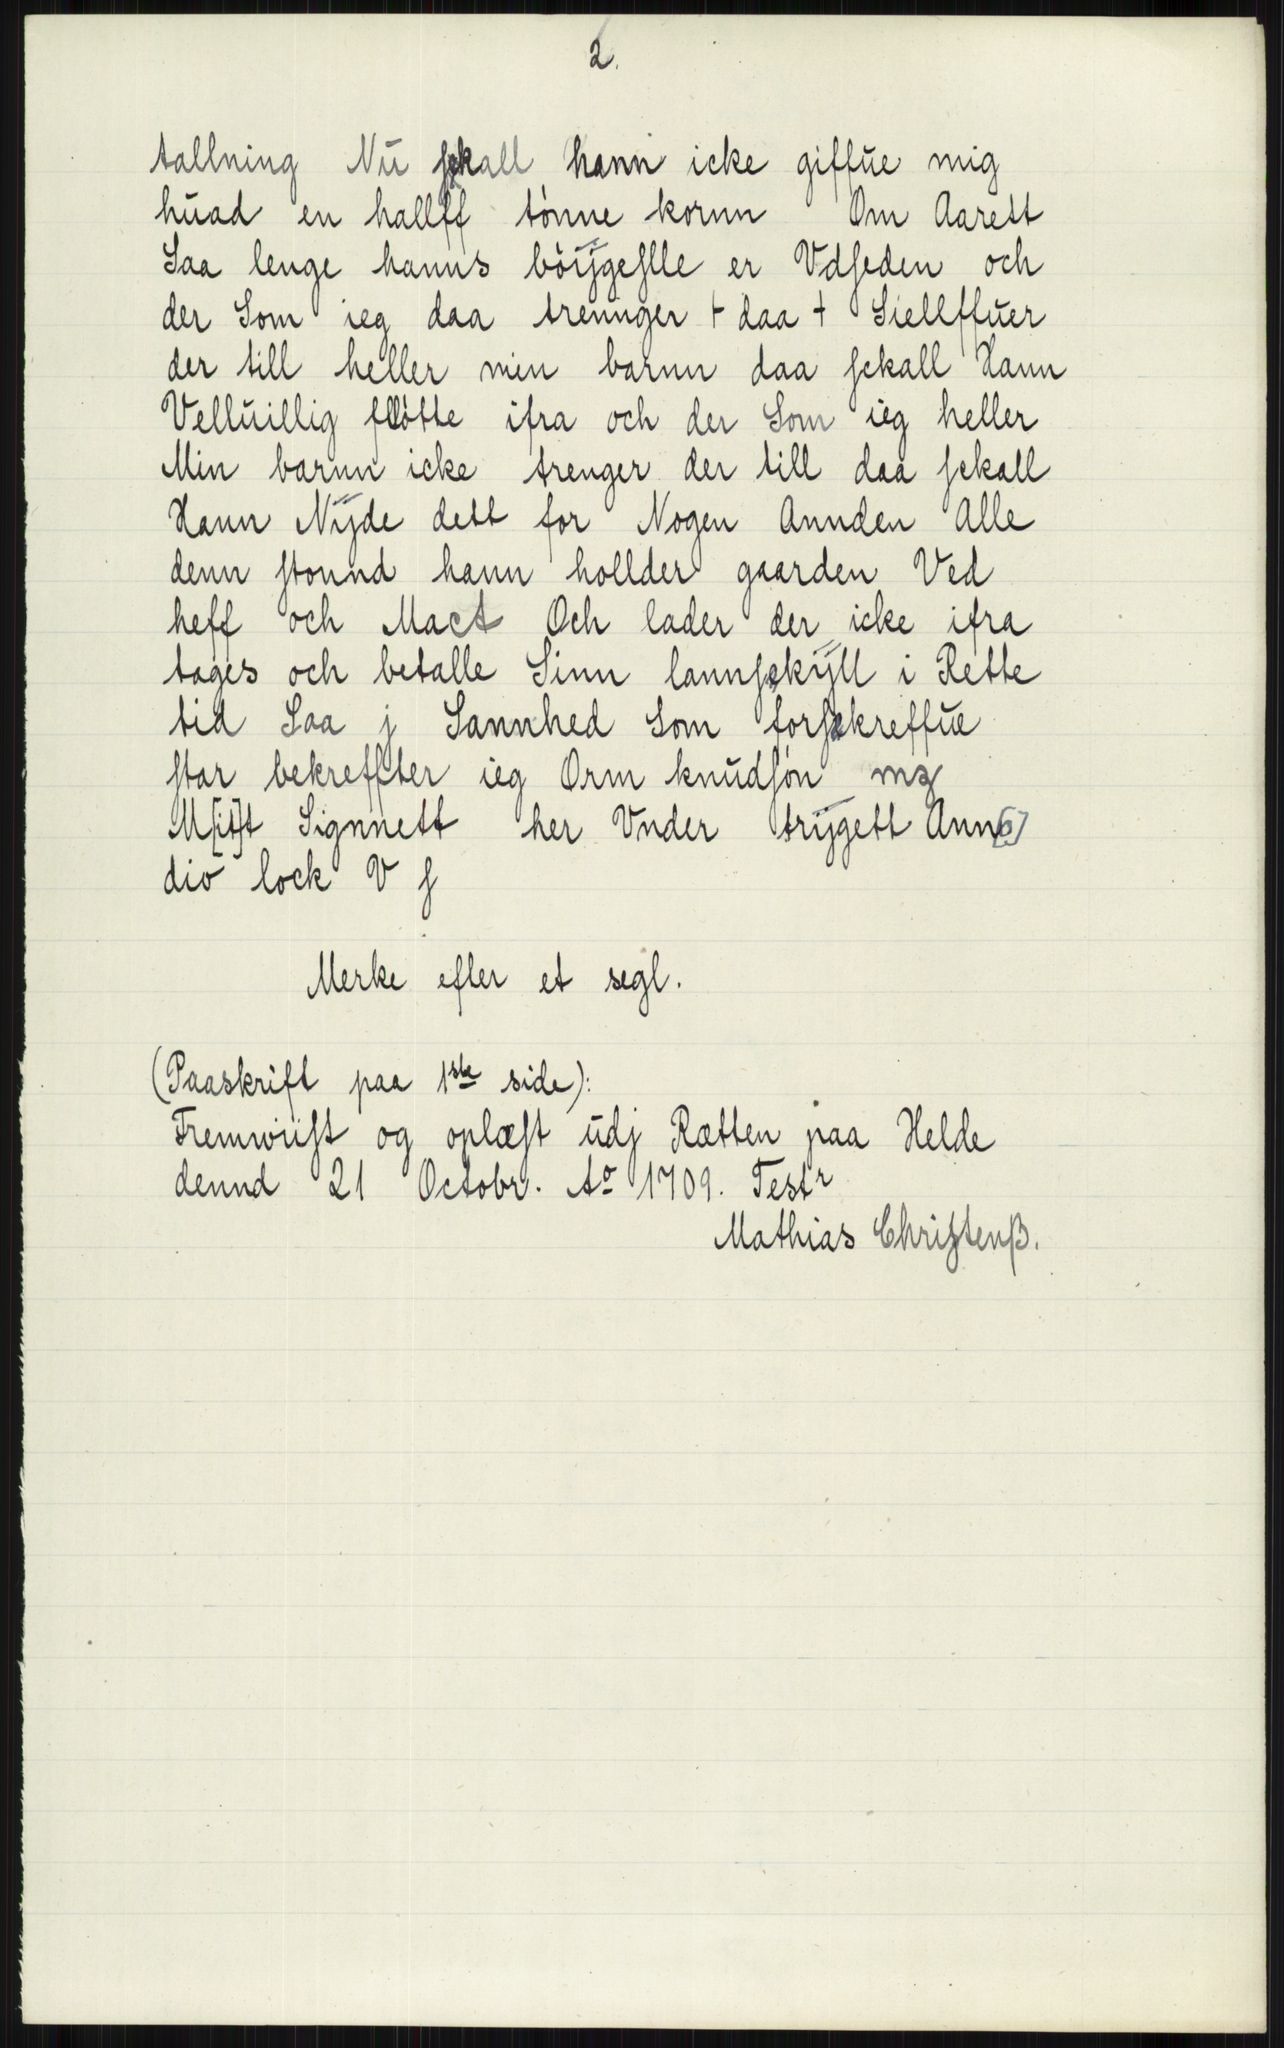 2.
tallning Nu skall hann icke giffue mig
huad en hallff tönne kornn Om Aarett
Saa lenge hanns böÿgeslle er Vdseden och
der Som ieg daa trennger + daa + Siellffuer
der till heller min barnn daa sckall Hann
Velluillig flötte ifra och der Som ieg heller
Min barnn icke trenger der till daa sckall
Hann Nÿde dett for Nogen Annden Alle
denn stonnd hann hollder gaarden Ved
heff och Mact Och lader der icke ifra
tages och betalle Sinn lannskÿll i Rette
tid Saa j Sannhed Som forskreffue
star bekreffter ieg Orm knudsön
M[it]t Signnett her Vnder trÿgett Ann[o]
dio lock V s
Merke efter et segl.
(Paaskrift paa 1ste side):
Fremwiist og oplæst udj Rætten paa Helde
dennd 21 Octobr. Ao 1709. Testr
Mathias Christenß.